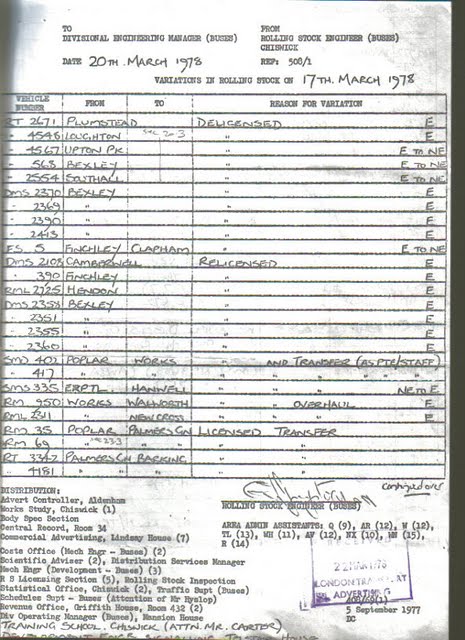 TO FROM
DIVISIONAL ENGINEERING MANAGER (BUSES) ROLLING STOCK ENGINEER (BUSES)
CHISWICK
DATE 20TH. MARCH 1978 REF: 508/1
VARIATIONS IN ROLLING STOCK ON 17TH. MARCH 1978
VEHICLE NUMBER FROM TO REASON FOR VARIATION
RT 2671 PLUMSTEAD DELICENSED E
" 4548 LOUGHTON " E
" 4567 UPTON PK. " E TO NE
" 568 BEXLEY " E TO NE
" 2554 SOUTHALL " E TO NE
DMS 2370 BEXLEY " E
" 2369 " " E
" 2390 " " E
" 2413 " " E
FS 5 FINCHLEY CLAPHAM " E TO NE
DMS 2108 CAMBERWELL RELICENSED E
" 390 FINCHLEY " E
RML 2725 HENDON " E
DMS 2353 BEXLEY " E
" 2351 " " E
" 2355 " " E
" 2360 " " E
SMD 402 POPLAR WORKS " AND TRANSFER (AS PTE/STAFF)
" 417 " " " " "
SMS 335 ERPTL HANWELL " " NE TO E
RM 950 WORKS WALWORTH " " OVERHAUL E
RML 2341 " NEW CROSS " " " E
RM 35 POPLAR PALMERS GN LICENSED TRANSFER
RM 69 " " " "
RT 3342 PALMERS GN BARKING " "
" 4181 " " " "
continued over
DISTRIBUTION:
Advert Controller, Aldenham
Works Study, Chiswick (1)
Body Spec Section
Central Record, Room 34
Commercial Advertising, Lindsay House (7)
Costs Office (Mech Engr - Buses) (2)
Scientific Adviser (2), Distribution Services Manager
Mech Engr (Development - Buses) (3)
R S Licensing Section (5), Rolling Stock Inspection
Statistical Office, Chiswick (2), Traffic Dept (Buses)
Schedules Supt - Buses (Attention of Mr Bygrop)
Revenue Office, Griffith House, Room 432 (2)
Div Operating Manager (Buses), Mansion House
TRAINING SCHOOL, CHISWICK (ATTN. MR. CARTER)
ROLLING STOCK ENGINEER (BUSES)
AREA ADMIN ASSISTANTS: Q (9), AR (12), W (12),
TL (13), WH (11), AV (12), NX (10), HN (15),
R (14)
RECEIVED
22 MAR 1978
LONDON TRANSPORT
ADVERTISING
5 September 1977
DC